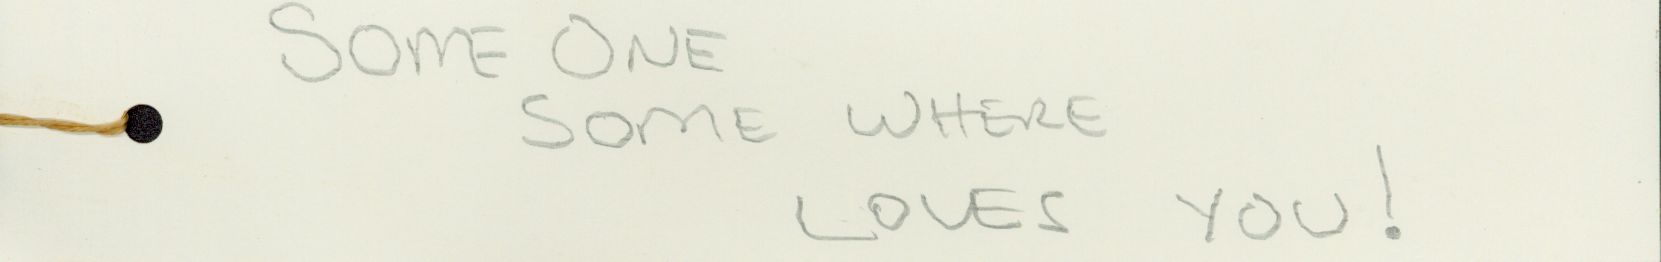 SOME ONE
SOME WHERE
LOVES YOU!